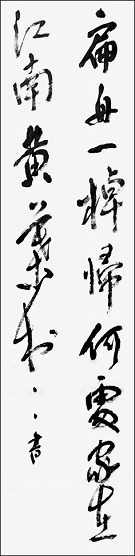 扁舟一棹歸何處家在
江南黄葉村
書